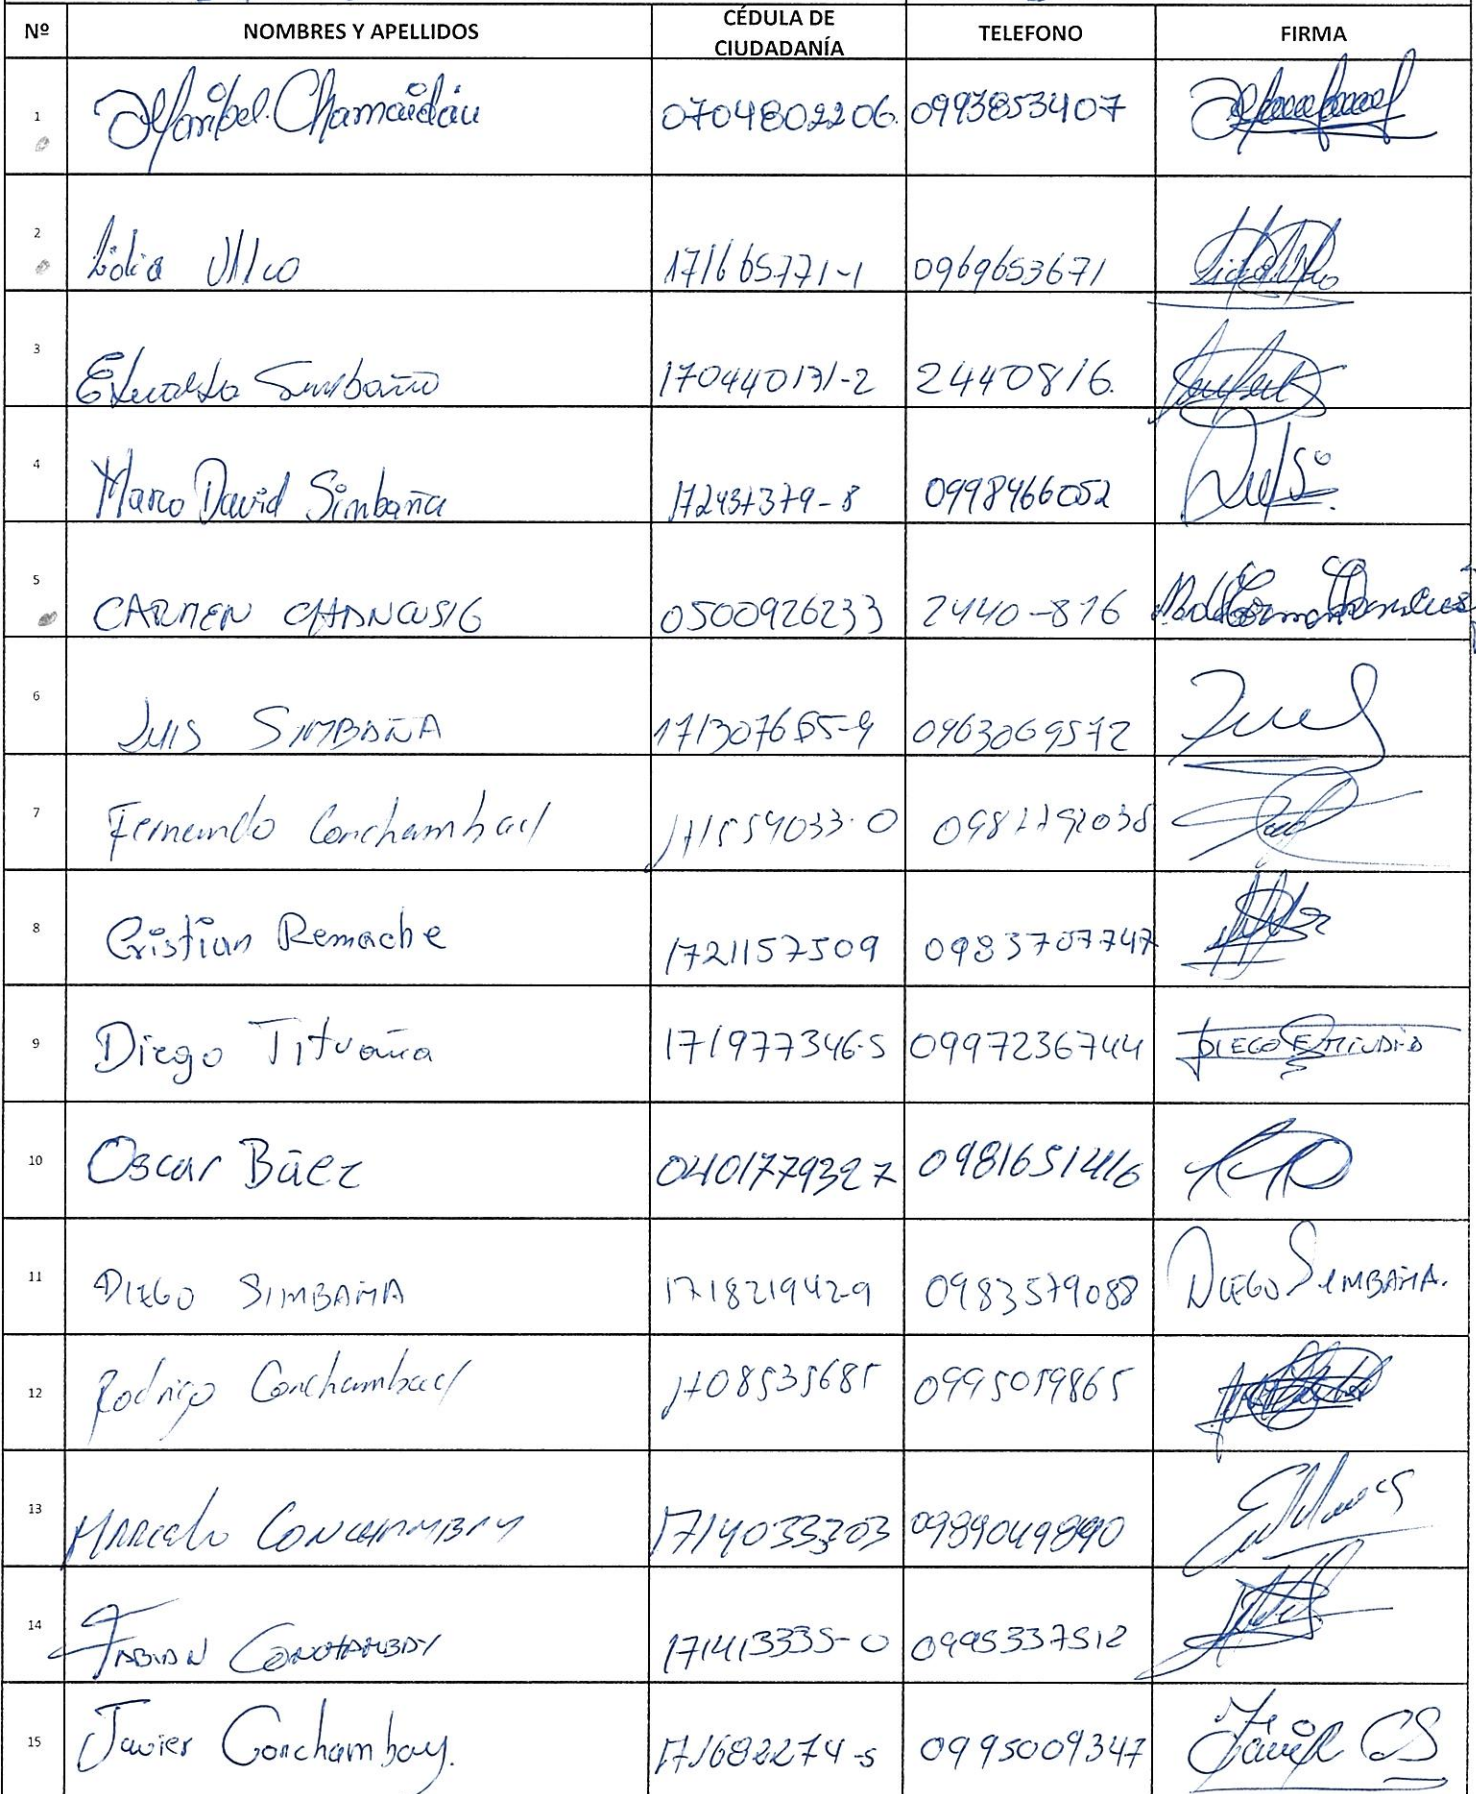 Nº NOMBRES Y APELLIDOS CÉDULA DE CIUDADANÍA TELEFONO FIRMA
1 Maribel Chamaidán 0704802206. 0993853407
2 Lidia Vilco 171665771-1 0969653671
3 Estualdo Simbaña 170440131-2 2440816.
4 Marco David Simbaña 172437379-8 0998466052
5 CARMEN CHANCUSIG 0500926233 2440-816
6 LUIS SIMBAÑA 171307665-9 0963069572
7 Fernando Conchambay 171559033-0
8 Cristian Remache 1721157509 0983707747
9 Diego Tituaña 171977346-5 0997236744 DIEGO
10 Oscar Báez 0401779327 0981651416
11 DIEGO SIMBAÑA 171821942-9 0983579088 DIEGO SIMBAÑA.
12 Rodrigo Conchambay 1708535685 0995059865
13 Marcelo CONCHAMBAY 1714033303 0989049890
14 FABIAN CONCHAMBAY 171413335-0 0995337512
15 Javier Conchambay. 171682274-5 0995009347 Javier CS